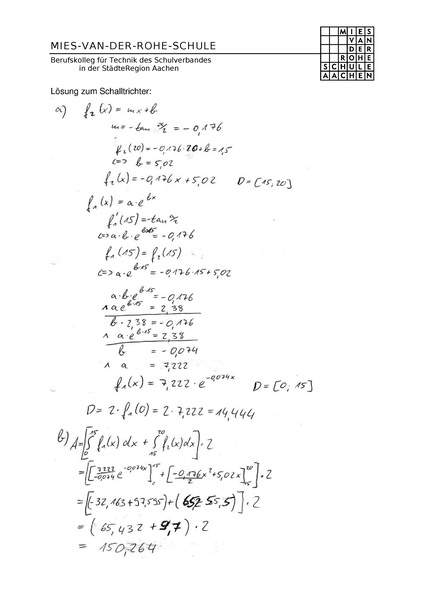 MIES-VAN-DER-ROHE-SCHULE
Berufskolleg für Technik des Schulverbandes
in der StädteRegion Aachen
MIES
VAN
DER
ROHE
SCHULE
AACHEN
Lösung zum Schalltrichter:
a) f₂(x) = mx+b
m = -tan α/2 = -0,176
f₂(20) = -0,176·20+b = 1,5
<=> b = 5,02
f₂(x) = -0,176x + 5,02 D = [15,20]
f₁(x) = a·e^bx
f₁'(15) = -tan α/2
<=> a·b·e^b·15 = -0,176
f₁(15) = f₂(15)
<=> a·e^b·15 = -0,176·15+5,02
a·b·e^b·15 = -0,176
∧ a e^b·15 = 2,38
b·2,38 = -0,176
∧ a·e^b·15 = 2,38
b = -0,074
∧ a = 7,222
f₁(x) = 7,222·e^-0,074x D = [0; 15]
D = 2·f₁(0) = 2·7,222 = 14,444
b) A = [∫₀¹⁵ f₁(x) dx + ∫₁₅²⁰ f₂(x) dx]·2
= [[7,222/-0,074 e^-0,074x]¹⁵ + [-0,176/2 x²+5,02x]²⁰₁₅]·2
= [(-32,163+97,595)+( 55,5)]·2
= (65,432 + 9,7)·2
= 150,264